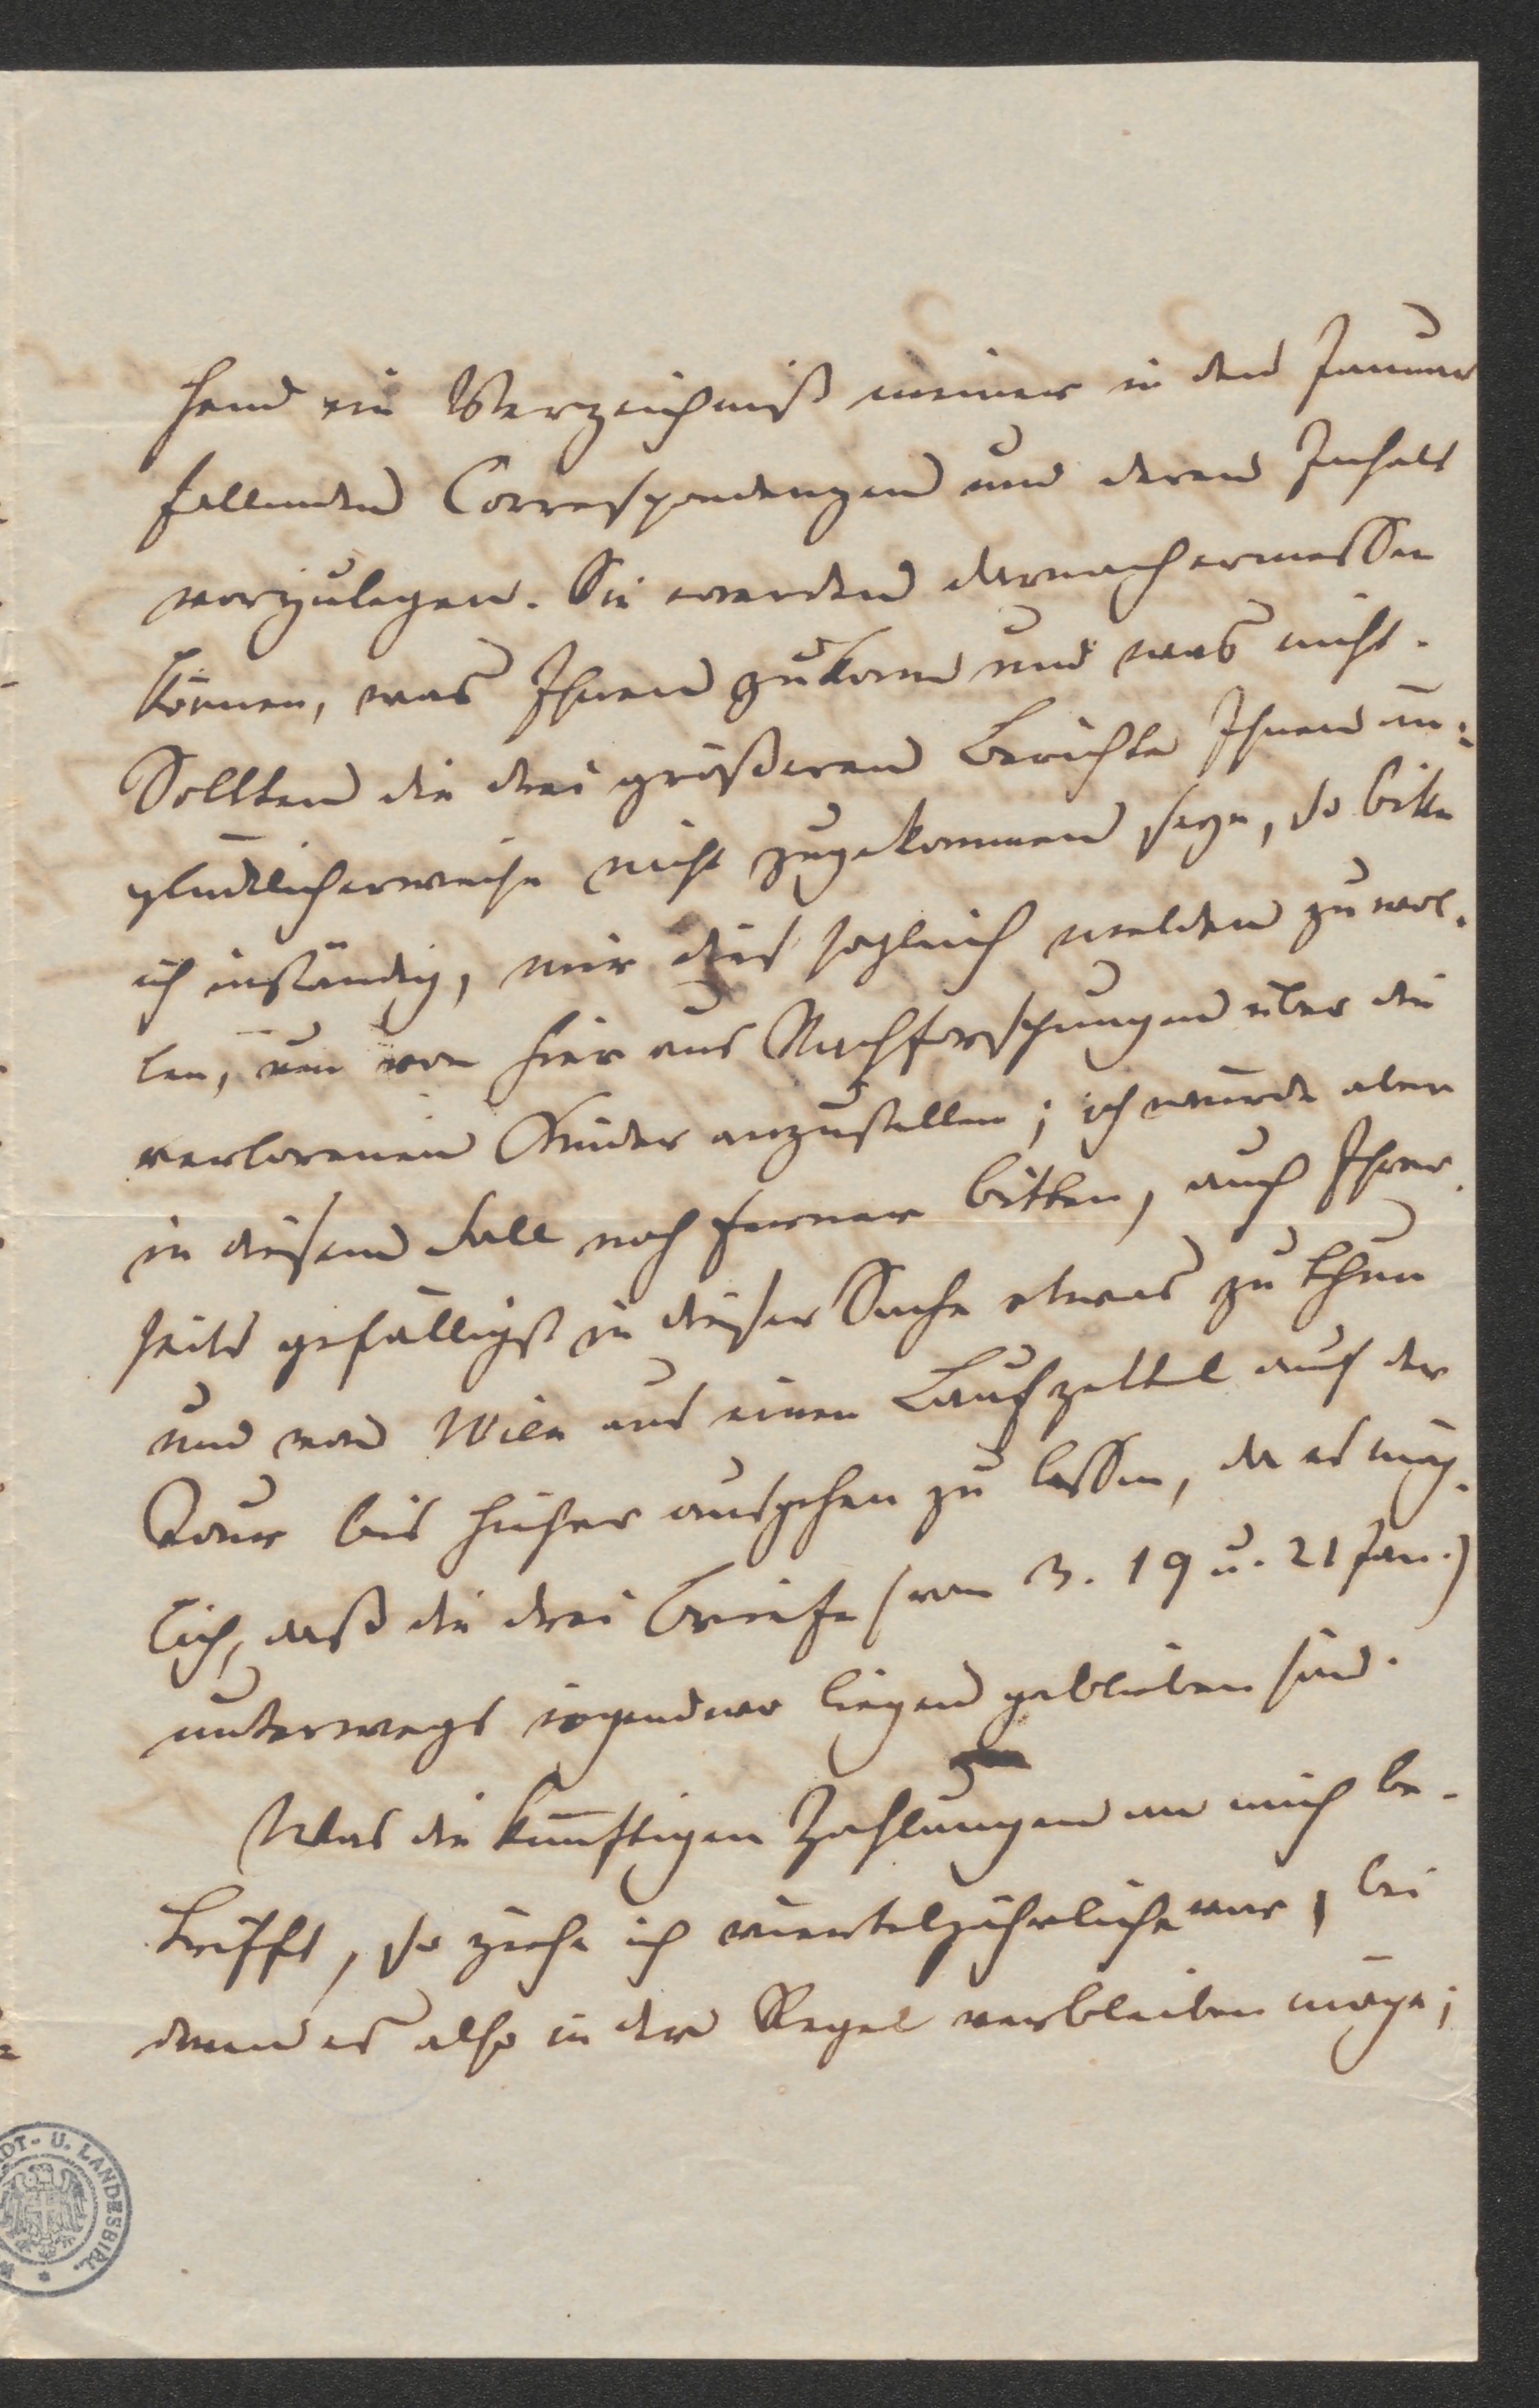 hend ein Verzeichniß meiner in den Januar
fallenden Correspondenzen und deren Inhalt
vorzulegen. Sie werden darnach ermessen
können, was Ihnen zukam und was nicht.
Sollten die drei größeren Berichte Ihnen un-
glücklicherweise nicht zugekommen seyn, so bitte
ich inständig, mir dies sogleich melden zu wol-
len, um von hier aus Nachforschungen über die
verlorenen Kinder anzustellen; ich würde aber
in diesem Fall noch ferner bitten, auch Ihrer-
seits gefälligst in dieser Sache etwas zu thun
und von Wien aus einen Laufzettel auf der
Tour bis hieher ausgehen zu lassen, da es mög-
lich, daß die drei Briefe (vom 3. 19 u. 21 Jan.)
unterwegs irgendwo liegen geblieben sind.
Was die künftigen Zahlungen an mich be-
trifft, so ziehe ich vierteljährliche vor, bei
denen es also in der Regel verbleiben möge;
DT- U. LANDESBIBL.